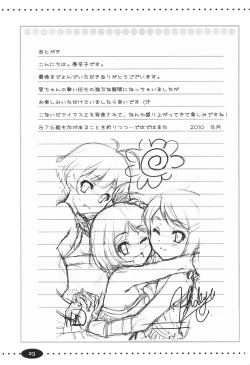 あとがき
こんにちは。唐辛子です。
最後までよんでいただきありがとうございます。
愛ちゃんの勢い任せの強引な展開になっちゃいましたが
お楽しみいただけていましたら幸いです (汗
こないだアイマス2も発表されて、なんか盛り上がってきて楽しみですね!
竜も出が来ることを祈りつつ…ではではまた 2010 8月